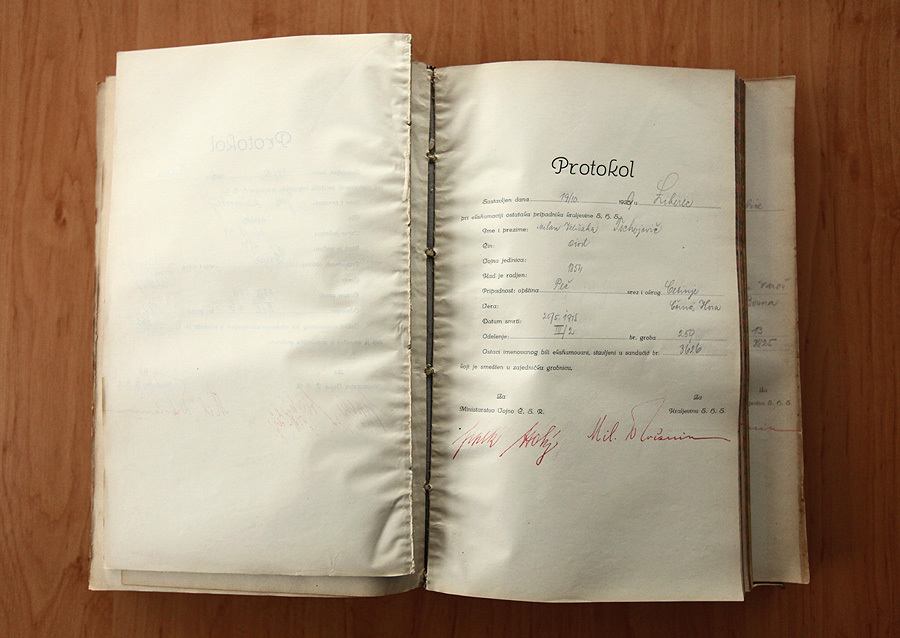 Protokol
Sastavljen dana 19/10 192 u Liberec
pri ekshumaciji ostataka pripadnika kraljevine S. H. S.
Ime i prezime: Milan
Čin: civil
Vojna jedinica:
Kad je rodjen: 1854
Pripadnost: opština Peč srez i okrug Cetinje
Vera: Černá Hora
Datum smrti: 20/5. 1918
Odelenje: III/2 br. groba 250
Ostaci imenovanog bili ekshumovani, stavljeni u sanduče br. 3626
koji je smešten u zajedničku grobnicu.
Za Za
Ministarstvo Vojno Č. S. R. Kraljevinu S. H. S.
Mil.